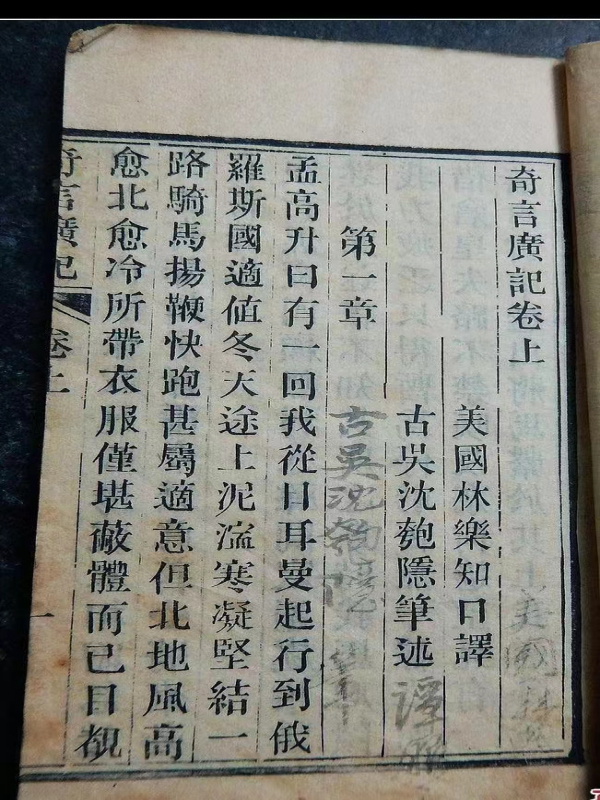 奇言廣記卷上
美國林樂知口譯
古吳沈匏隱筆述
第一章
古吳沈匏隱
孟高升曰有一回我從日耳曼起行到俄
羅斯國適値冬天途上泥濘寒凝堅結一
路騎馬揚鞭快跑甚屬適意但北地風高
愈北愈冷所帶衣服僅堪蔽體而已目覩
奇言廣記 卷上 一